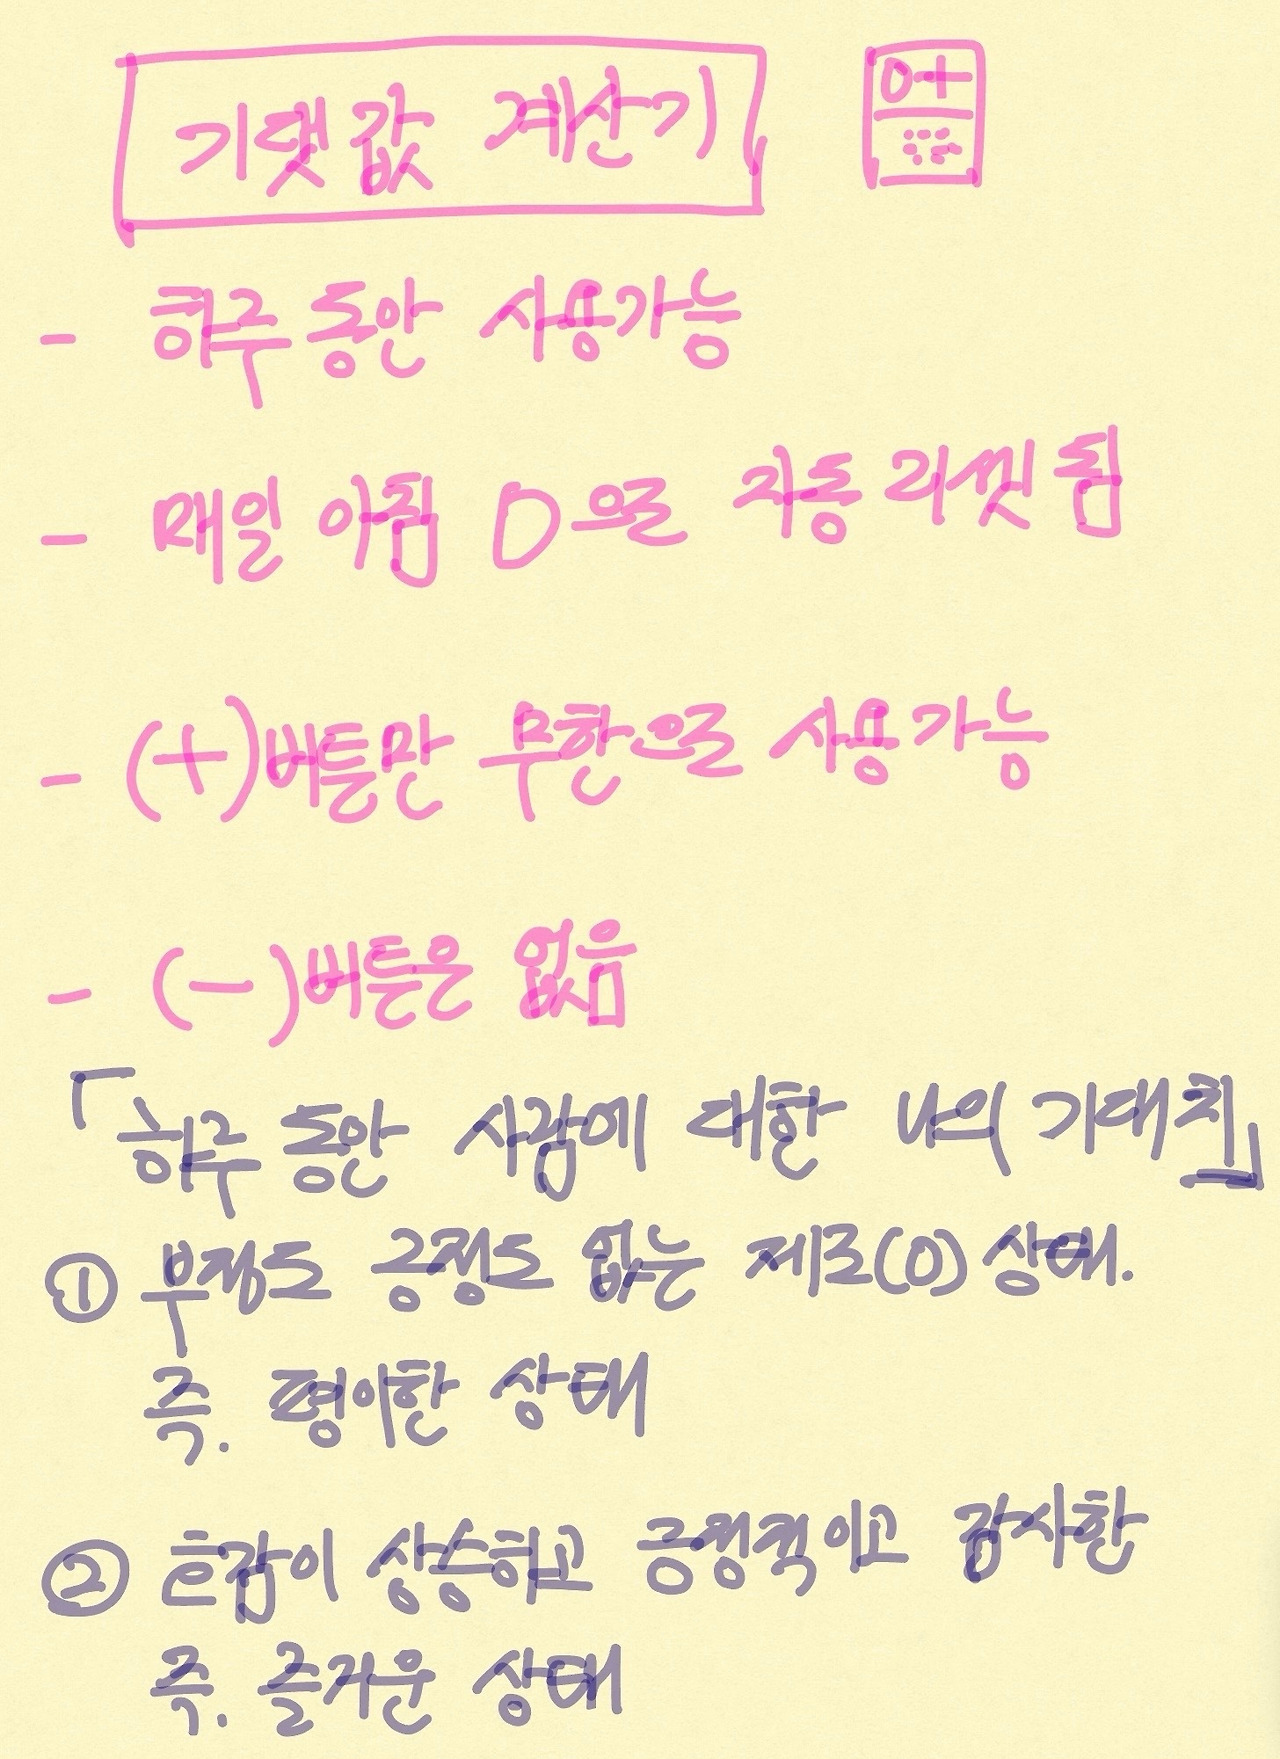 기댓값 계산기
0+
- 하루 동안 사용가능
- 매일 아침 0으로 자동 리셋 됨
- (+)버튼만 무한으로 사용가능
- (-)버튼은 없음
「하루 동안 사람에 대한 나의 기대치」
① 부정도 긍정도 없는 제로(0) 상태.
즉. 평이한 상태
② 호감이 상승하고 긍정적이고 감사한
즉. 즐거운 상태